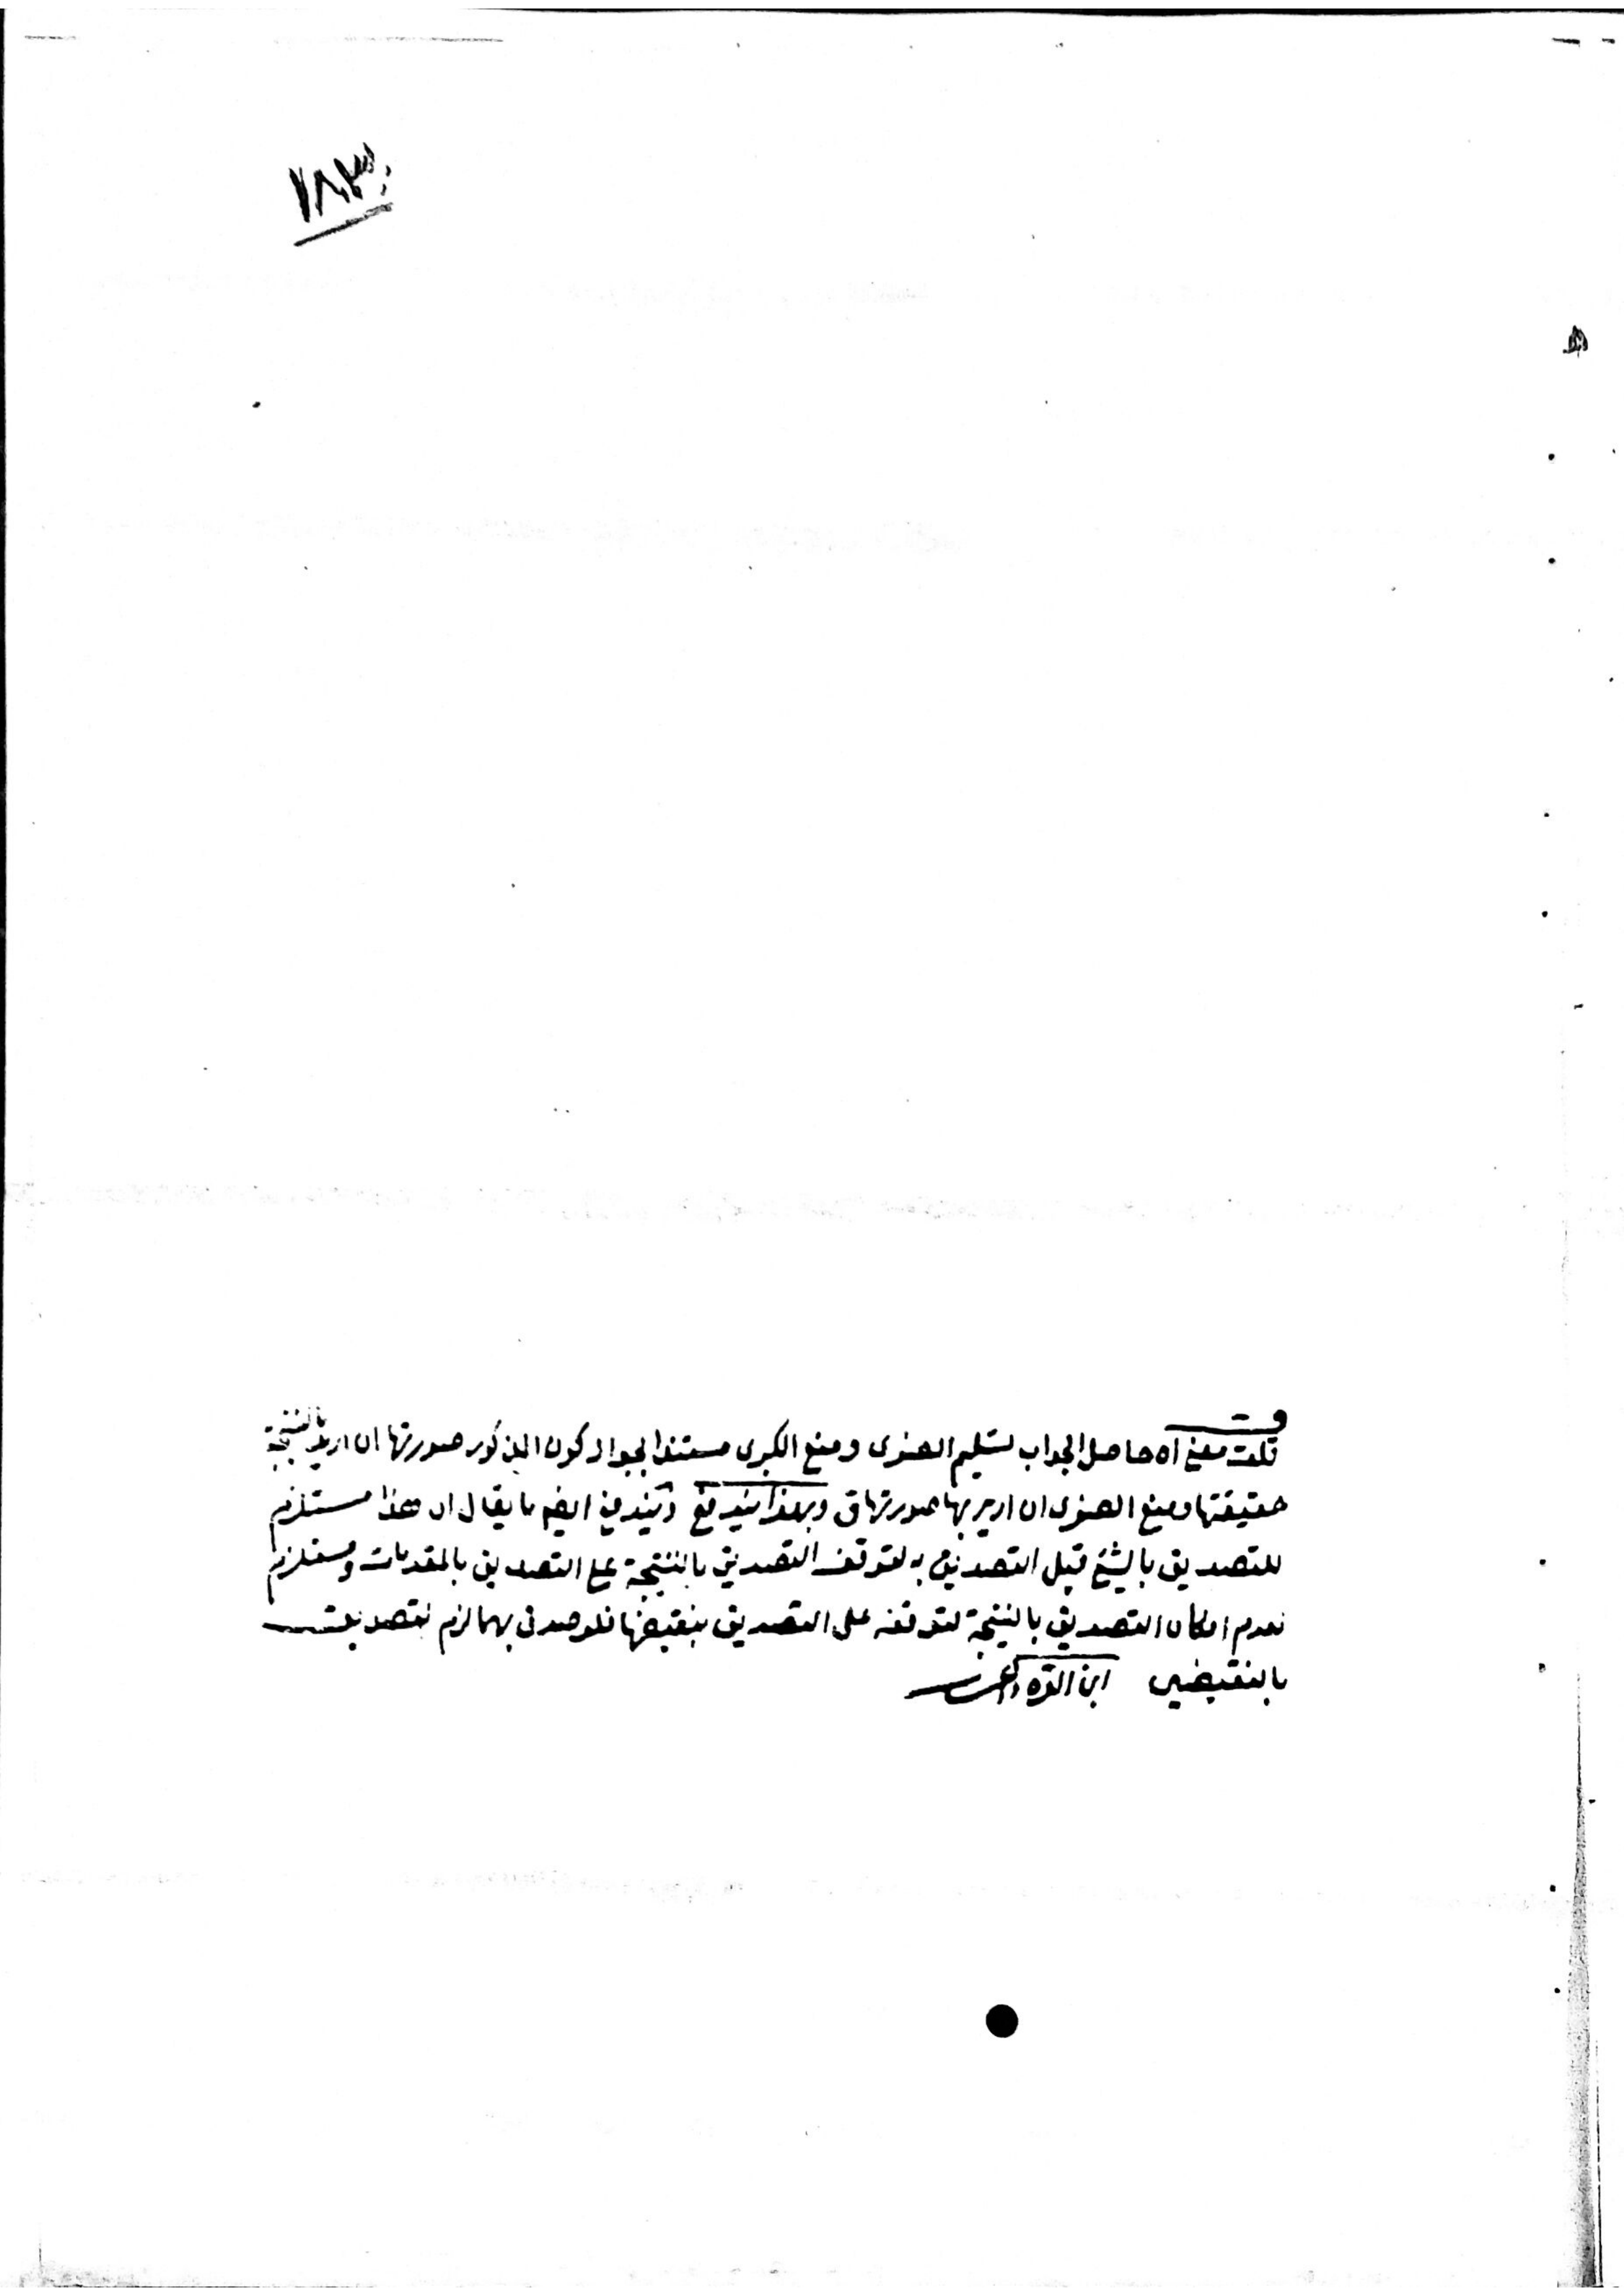 قلت معنى اه حاصل الجواب تسليم الصغرى ومنع الكبرى مستندا بجواز كون المذكور صورتها ان اريد بالنتيجة
حقيقتها ومنع الصغرى ان اريد بها صورتها ق وبهذا يندفع ايضم ما يقال ان هذا مستلزم
للتصديق بالشئ قبل التصديق به لتوقف التصديق بالنتيجة على التصديق بالمقدمات ومستلزم
لعدم امكان التصديق بالنتيجة لتوقفه على التصديق بنقيضها فلو صدق بهما لزم تصديق
بالنقيضين ابن القره داغى